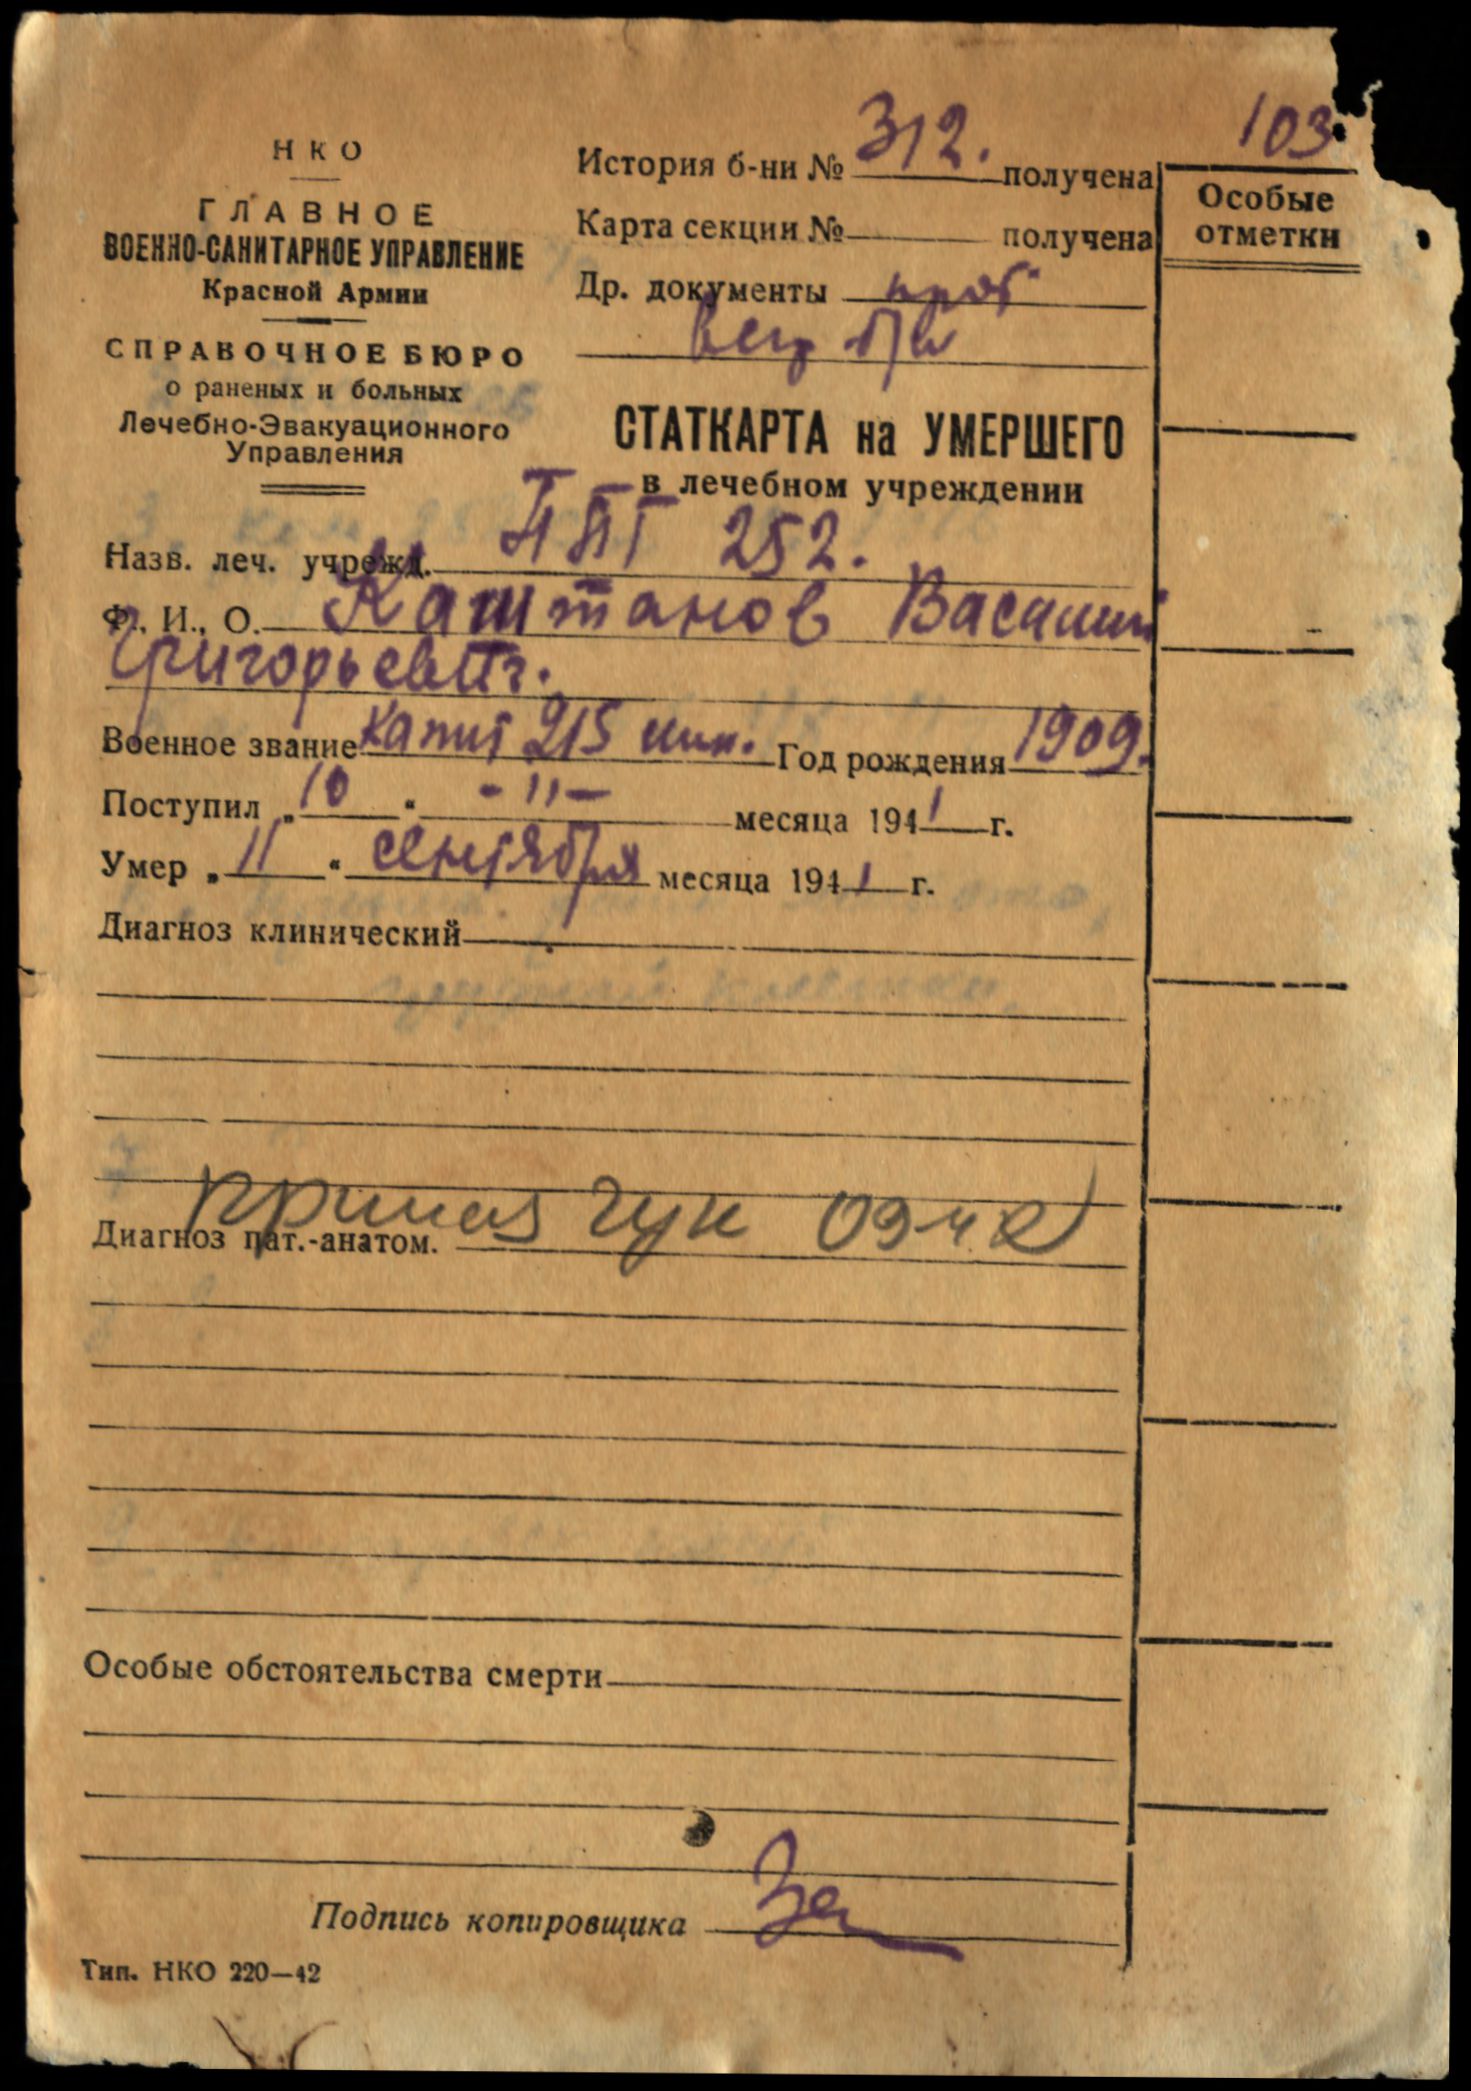 103
НКО
ГЛАВНОЕ
ВОЕННО-САНИТАРНОЕ УПРАВЛЕНИЕ
Красной Армии
СПРАВОЧНОЕ БЮРО
о раненых и больных
Лечебно-Эвакуационного
Управления
История б-ни № 312. получена
Карта секции № получена
Др. документы
Особые
отметки
СТАТКАРТА на УМЕРШЕГО
в лечебном учреждении
Назв. леч. учрежд. ППГ 252.
Ф., И., О. Каштанов Василий
Григорьевич.
Военное звание капит 215 Год рождения 1909.
Поступил „10“ -"- месяца 1941 г.
Умер „11“ сентября месяца 1941 г.
Диагноз клинический
приказ ГУК 0942
Диагноз пат.-анатом.
Особые обстоятельства смерти
Подпись копировщика
Тип. НКО 220—42